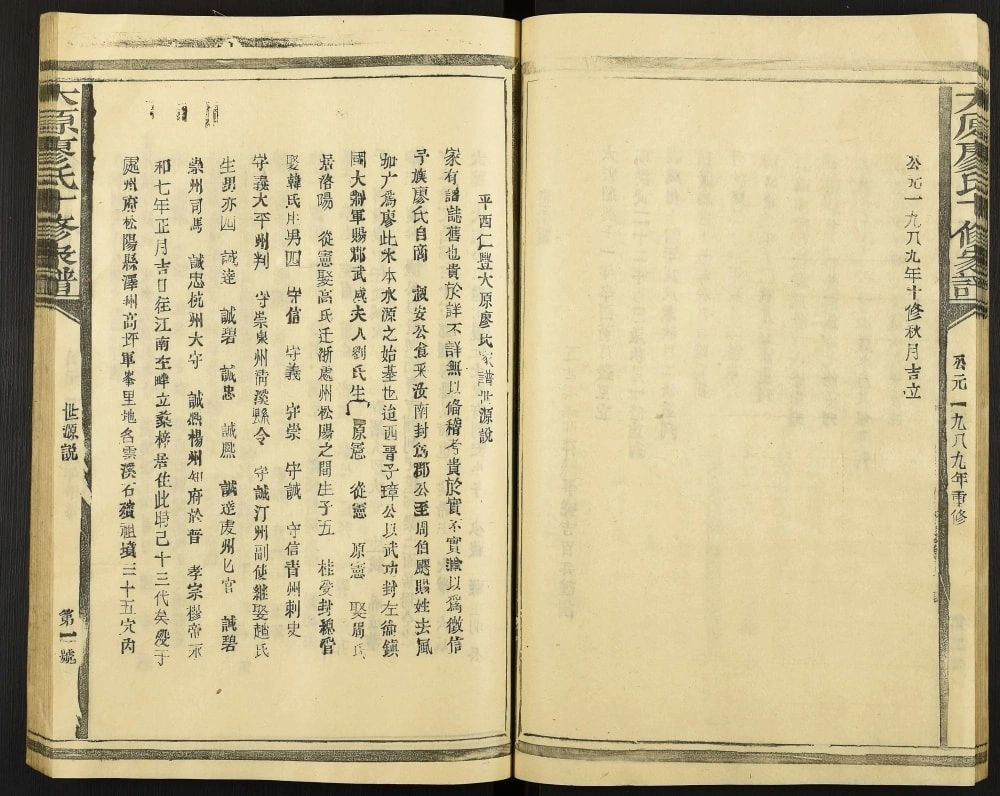 太原廖氏十修家譜
公元一九八九年重修
公元一九八九年十修秋月吉立
平西仁豐太原廖氏家譜世源説
家有譜誌舊也貴於詳不詳無以俻稽考貴於實不實難以爲徵信
予族廖氏自商 叔安公食采汝南封爲郡公至周伯颺賜姓去風
加广爲廖此木本水源之始基也迨西晋子璋公以武功封左衛鎮
國大將軍賜郡武威夫人劉氏生 原憲 從憲 原憲 娶周氏
居洛陽 從憲娶高氏迁浙處州松陽之間生子五 桂受封總管
娶韓氏生男四 守信 守義 守崇 守誠 守信青州刺史
守義太平州判 守崇泉州清溪縣令 守誠汀州副使継娶趙氏
生男亦四 誠達 誠碧 誠忠 誠熙 誠達虔州乜官 誠碧
崇州司馬 誠忠杭州太守 誠熙楊州知府於晉 孝宗穆帝永
和七年正月吉日往江南 立 梓居住此時己十三代矣殁于
處州府松陽縣澤州高坪軍峯里地名雲溪石磧祖墳三十五穴内
太原廖氏十修家譜
世源説
第一號